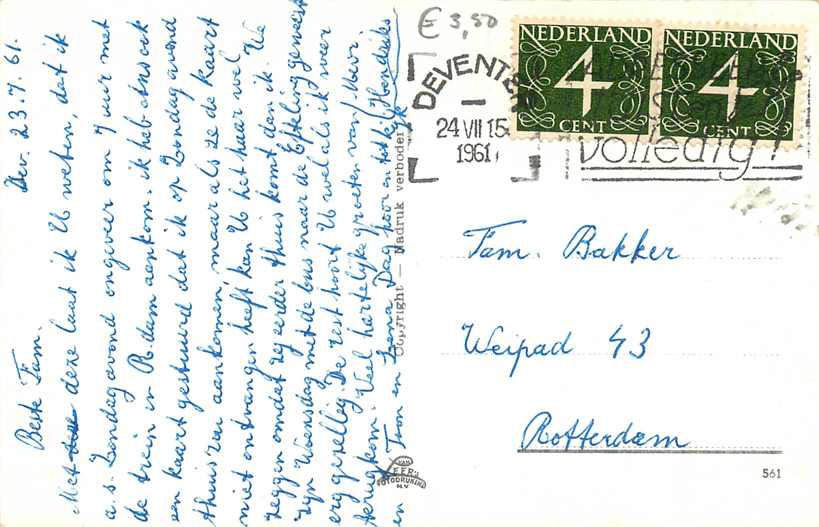 Dev. 23.7.61.
Beste Fam.
Met deze laat ik U weten, dat ik
a.s. Zondagavond ongeveer om 7 uur met
de trein in R.dam aankom. ik heb
een kaart gestuurd dat ik op Zondagavond
thuis zou aankomen, maar als ze de kaart
niet ontvangen heeft kan U het haar wel
zeggen omdat zij eerder thuis komt dan ik. We
zijn Woensdag met de bus naar de Efteling geweest
erg gezellig. De rest hoort U wel als ik weer
terugkom. Veel hartelijke groeten van
en Toon en Lena Dag hoor en tot k. Hendriks
Copyright — Nadruk verboden
VAN LEER'S
FOTODRUKIND.
N.V.
€ 3,50
NEDERLAND
4
CENT
NEDERLAND
4
CENT
DEVENTER
24 VII 15
1961
volledig!
Fam. Bakker
Weipad 43
Rotterdam
561